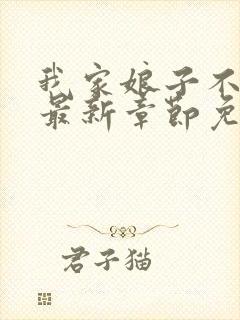 我家娘子不
最新章节免
君子猫